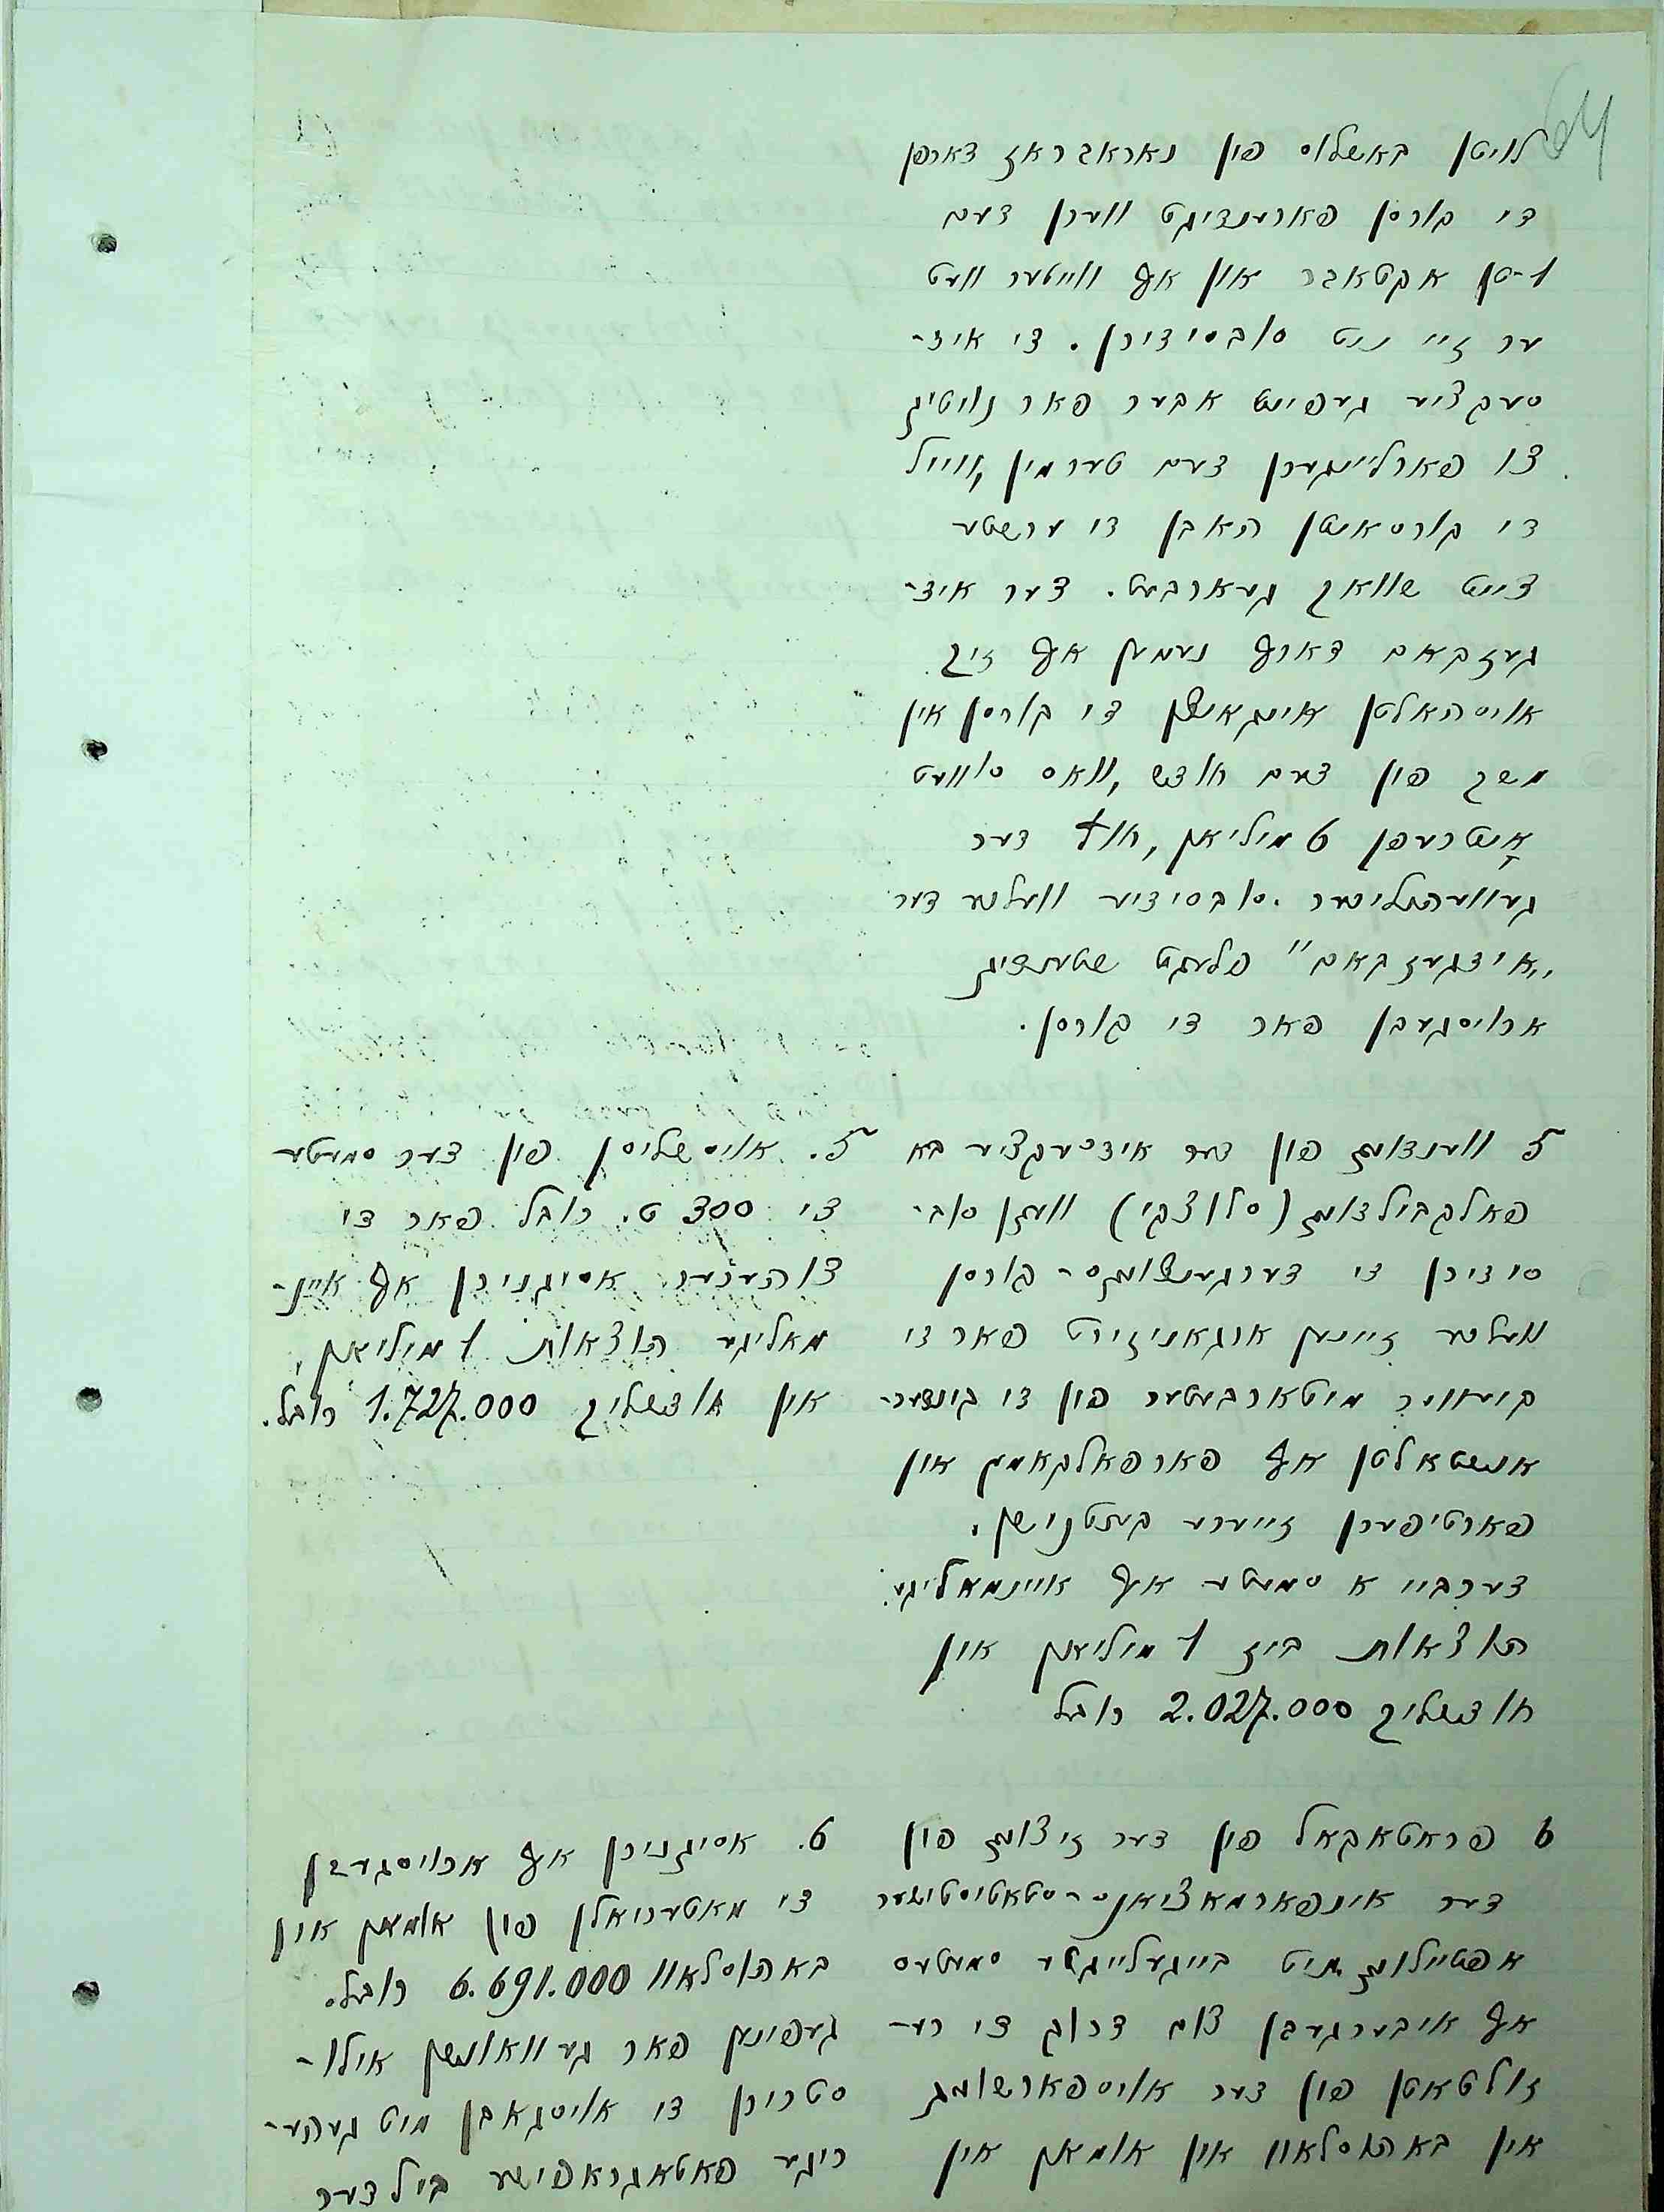 64
לויטן באשלוס פון נאראבראז דארפן
די קורסן פארענדיגט ווערן דעם
1-טן אקטאבר און אף ווייטער וועט
ער זיי ניט סובסידירן. די איד-
סעקציע געפינט אבער פאר נויטיג
צו פארליינגערן דעם טערמין, ווייל
די קורסאנטן האבן די ערשטע
צייט שוואך געארבעט. דער איד-
געזקאם דארף נעמען אף זיך
אויסהאלטן אינגאנצן די קורסן אין
משך פון דעם חודש, וואס סוועט
אנטרעפן 6 מיליאן, חוץ דער
געוועהנליכער סובסידיע וועלכע דער
„אידגעזקאם" פלעגט שטענדיג
ארויסגעבן פאר די קורסן.
5 ווענדונג פון דער אידסעקציע בא
פאלקבילדונג (סלוצקי) וועגן סוב-
סידירן די דערגענצונגס-קורסן
וועלכע זיינען ארגאניזירט פאר די
מיטארבעטער פון די קינדער-
אנשטאלטן אף פארפאלקאמען און
פארטיפערן זייערע קענטנישן.
דערביי א סמעטע אף איינמאליגע
הוצאות ביז 1 מיליאן און
חודשליך 2.027.000 רובל
5. אויסשליסן פון דער סמעטע
די 300 ט. רובל פאר די
צוהערער. אסיגנירן אף איינ-
מאליגע הוצאות 1 מיליאן,
און חודשליך 1.727.000 רובל.
6 פראטאקאל פון דער זיצונג פון
דער אינפארמאציאנס-סטאטיסטישער
אפטיילונג מיט בייגעלייגטע סמעטעס
אף איבערגעבן צום דרוק די רע-
זולטאטן פון דער אויספארשונג
אין באהוסלאוו און אומאן און
6. אסיגנירן אף ארויסגעבן
די מאטעריאלן פון אומאן און
באהוסלאוו 6.691.000 רובל.
געפינען פאר געוואונשן אילו-
סטרירן די אויסגאבן מיט געהע-
ריגע פאטאגראפישע בילדער